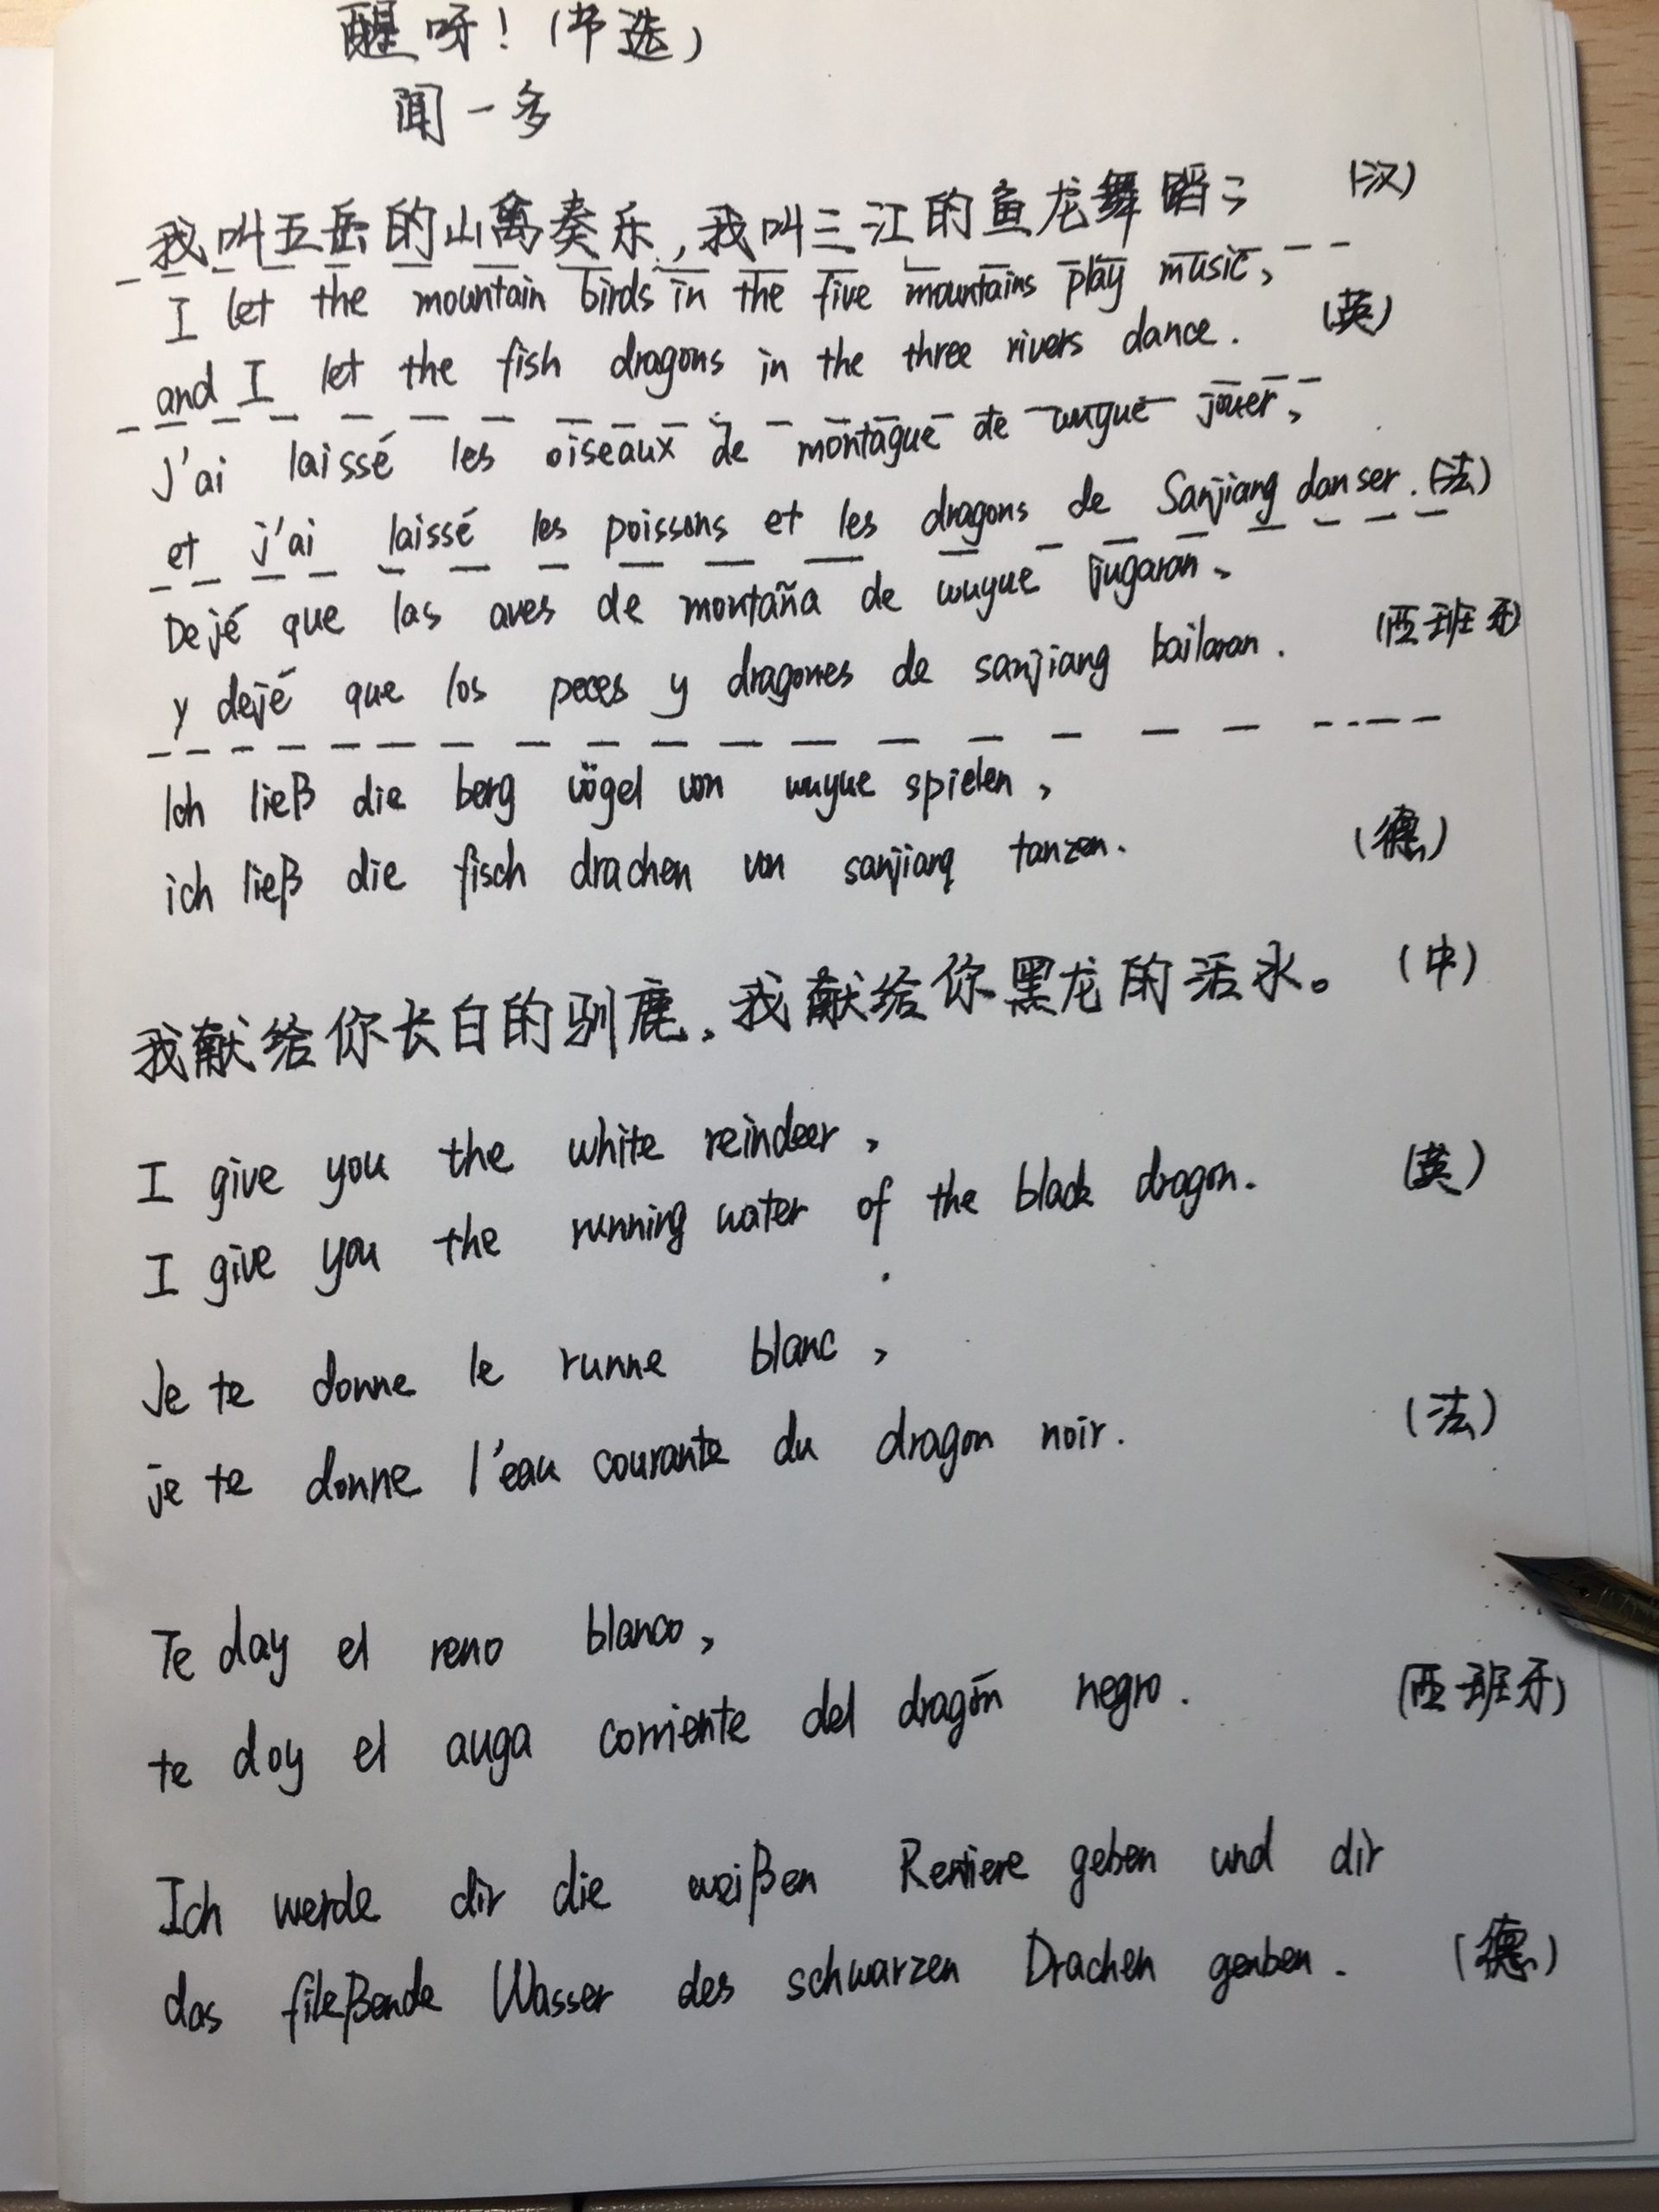 醒呀！（节选）
闻一多
我叫五岳的山禽奏乐，我叫三江的鱼龙舞蹈； （汉）
I let the mountain birds in the five mountains play music,
and I let the fish dragons in the three rivers dance. （英）
J'ai laissé les oiseaux de montague de wuyue jouer,
et j'ai laissé les poissons et les dragons de Sanjiang danser. （法）
Dejé que las aves de montaña de wuyue jugaran,
y dejé que los peces y dragones de sanjiang bailaran. （西班牙）
Ich ließ die berg vögel von wuyue spielen,
ich ließ die fisch drachen von sanjiang tanzen. （德）
我献给你长白的驯鹿，我献给你黑龙的活水。 （中）
I give you the white reindeer,
I give you the running water of the black dragon. （英）
Je te donne le runne blanc,
je te donne l'eau courante du dragon noir. （法）
Te day el reno blanco,
te doy el auga corriente del dragón negro. （西班牙）
Ich werde dir die weißen Rentiere geben und dir
das fileßende Wasser des schwarzen Drachen genben. （德）